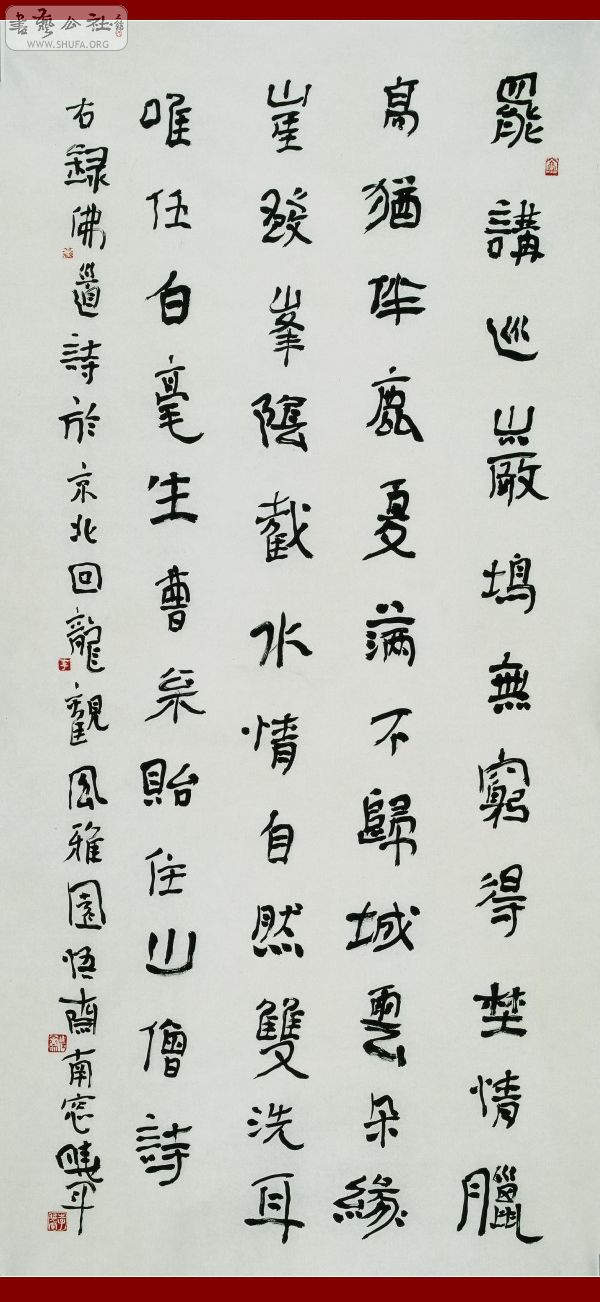 書藝公社
WWW.SHUFA.ORG
罷講巡巖塢無窮得埜情臘
高猶伴鹿夏滿不歸城雲朵緣
崖發峯陰截水情自然雙洗耳
唯任白毫生曹枀貽住山僧詩
右録佛道詩於京北回龍觀風雅園悟齋南窓曉軍